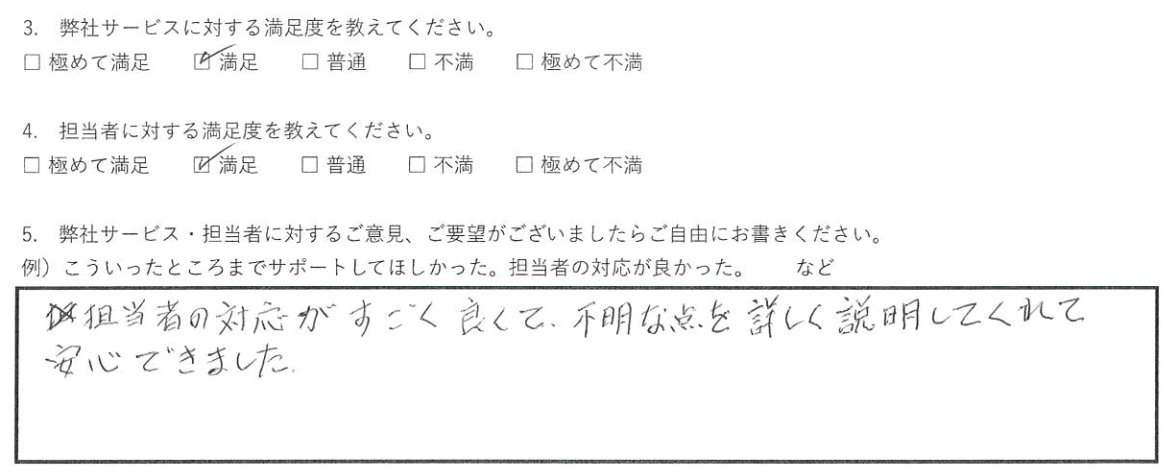 3. 弊社サービスに対する満足度を教えてください。
□ 極めて満足 ☑ 満足 □ 普通 □ 不満 □ 極めて不満
4. 担当者に対する満足度を教えてください。
□ 極めて満足 ☑ 満足 □ 普通 □ 不満 □ 極めて不満
5. 弊社サービス・担当者に対するご意見、ご要望がございましたらご自由にお書きください。
例）こういったところまでサポートしてほしかった。担当者の対応が良かった。 など
担当者の対応がすごく良くて、不明な点を詳しく説明してくれて
安心できました。